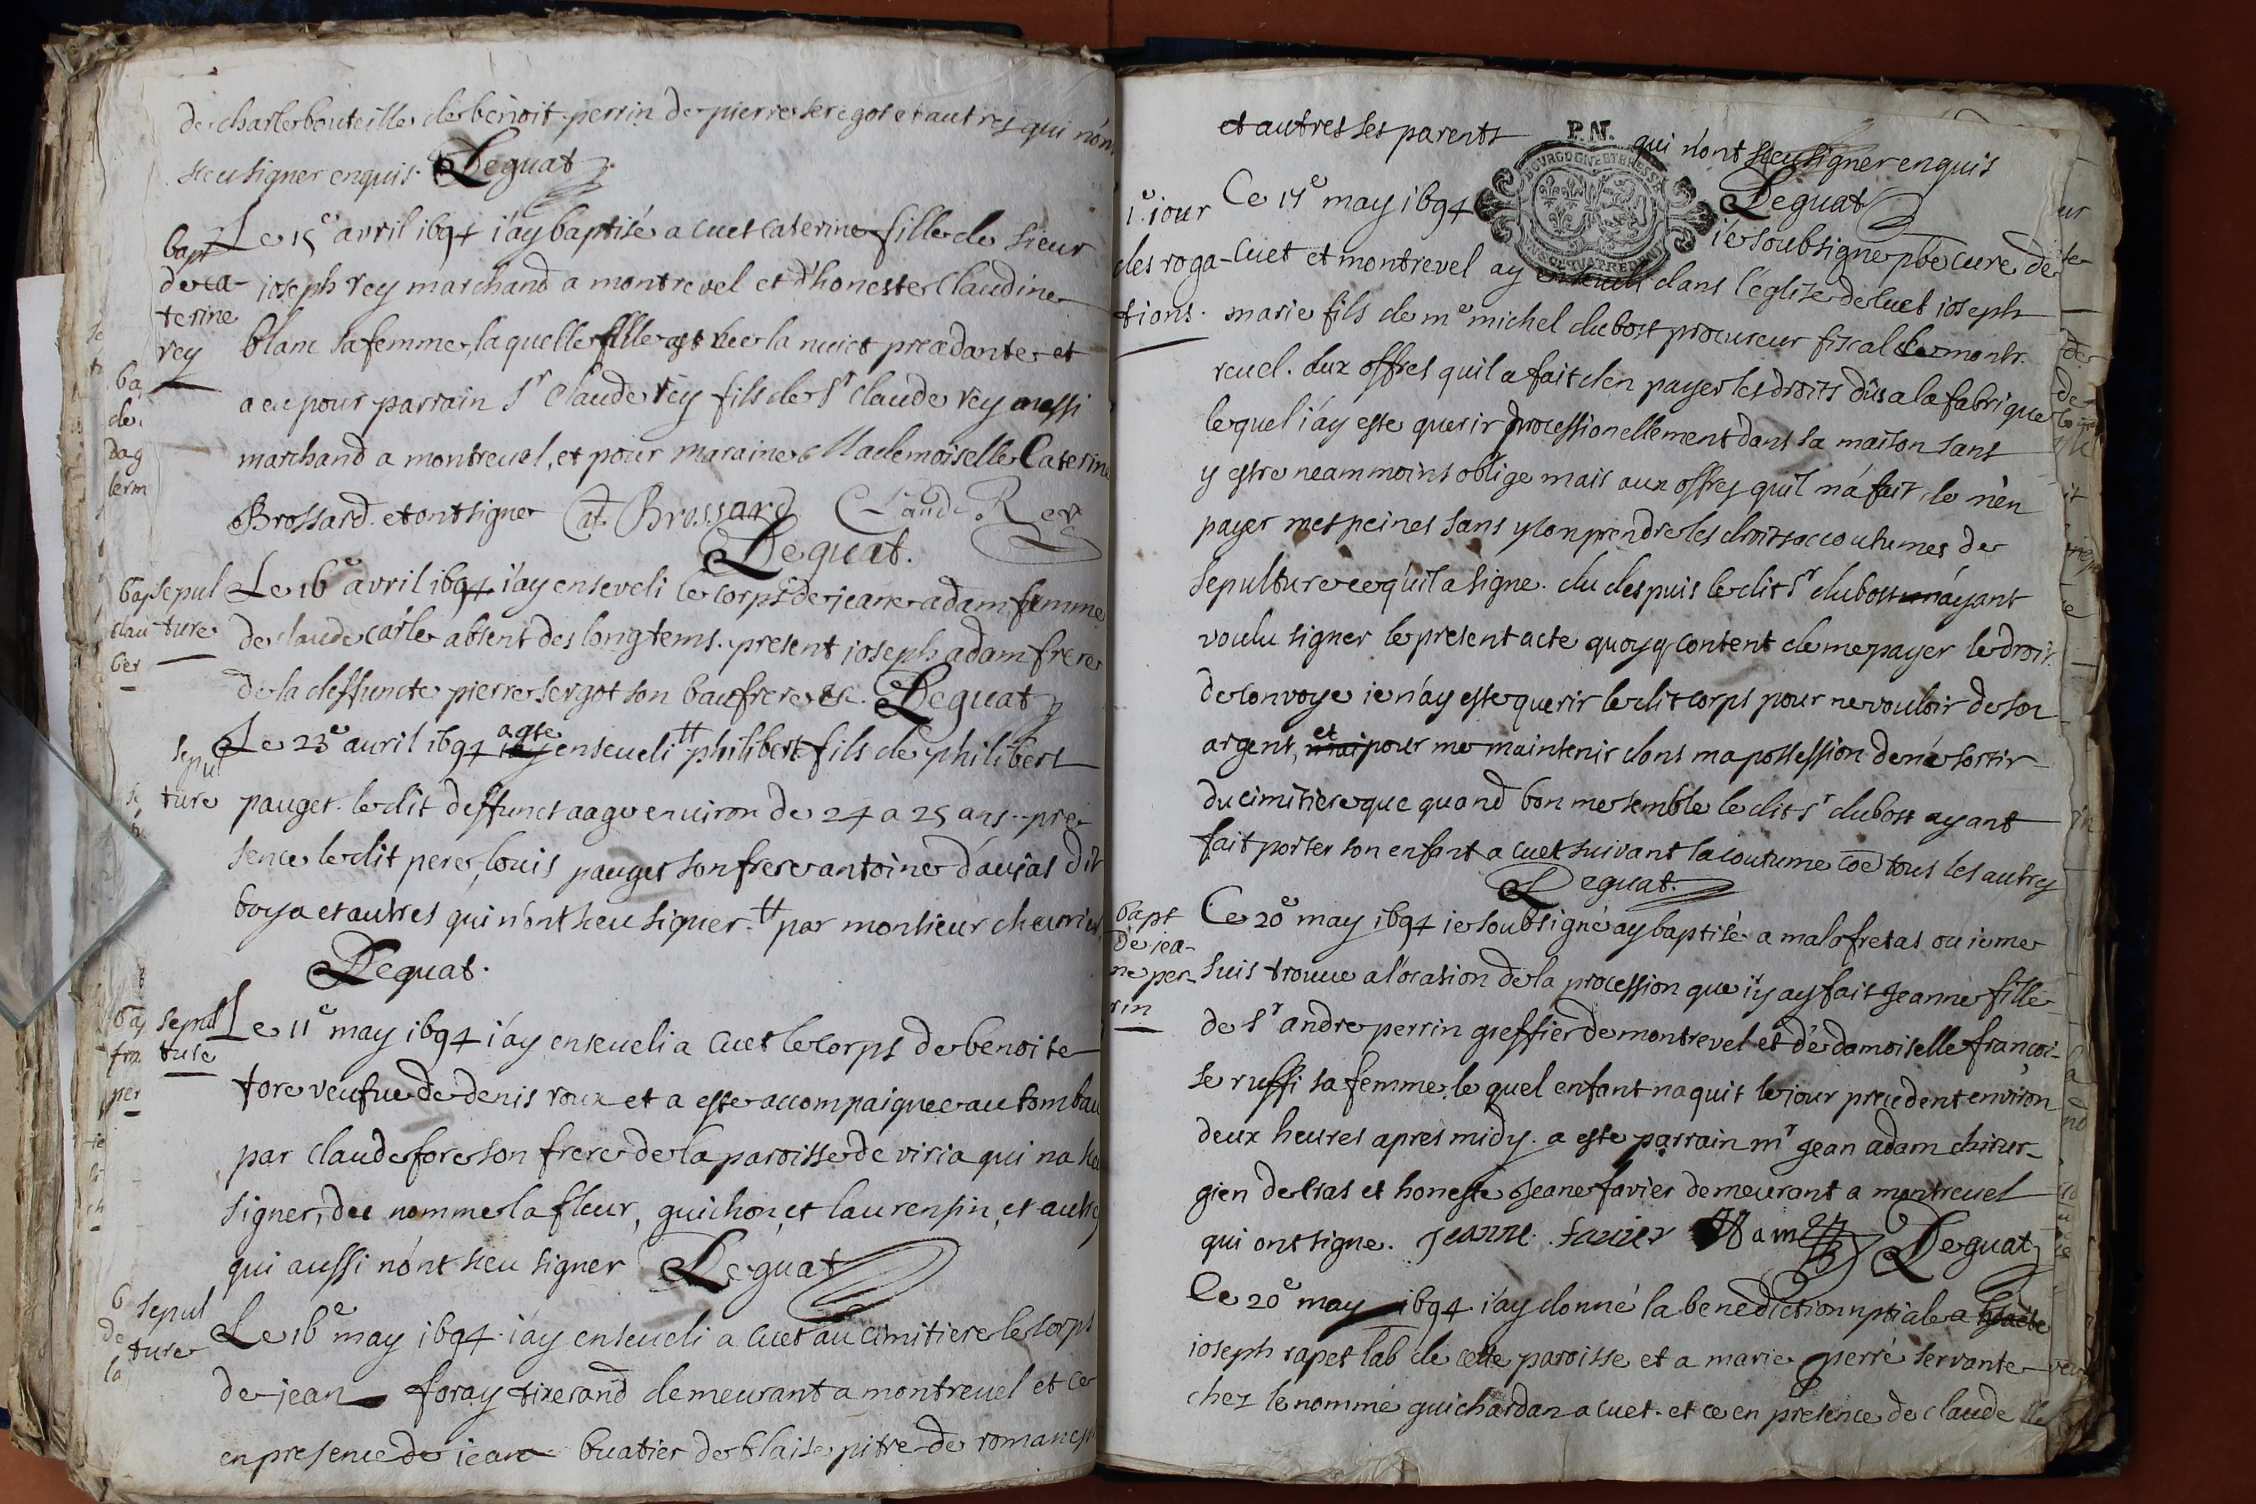 de charle bouteille de benoit perrin de pierre seregot et autres qui n'ont
sceu signer enquis. Deguat
bapt
de ca-
terine
rey
Le 15e avril 1694 i'ay baptisé a cuet caterine fille de sieur
ioseph rey marchand a montrevel et d'honeste Claudine
blanc sa femme, laquelle fille est née la nuict præcedante et
a eu pour parrain Sr Claude rey fils de Sr Claude rey aussi
marchand a montrevel, et pour maraine Mademoiselle Caterine
Brossard. et ont signé Cat. Brossard Claude Rey
Deguat.
sepul
ture
Le 16e avril 1694 i'ay enseveli le corps de jeane adam femme
de claude carle absent des long tems. present ioseph adam frere
de la deffuncte pierre sergot son baufrere &c. Deguat
sepul
ture
Le 23e avril 1694 a este enseveli tt philibert fils de philibert
pauget. le dit deffunct aagé environ de 24 a 25 ans. pre
sence le dit pere, louis pauget son frere antoine d'aujas dit
boya et autres qui n'ont sceu signer. tt par monsieur chevrier
Deguat.
sepul
ture
Le 11e may 1694 i'ay enseveli a Cuet le corps de benoite
fore veufue de denis roux et a este accompaignee au tombau
par claude fore son frere de la paroisse de viria qui na sceu
signer, du nomme la fleur, guichon, et laurensin, et autres
qui aussi n'ont sceu signer Deguat
sepul
ture
Le 16e may 1694. i'ay enseveli a Cuet au cimitiere le corps
de jean foray tixerand demeurant a montrevel et ce
en presence de iean buatier de blaise pitre de romanesche
et autres ses parents qui n'ont sceu signer enquis
P.N.
BOURGOGNE ET BRESSE
Deguat
1e iour
des roga-
tions.
Ce 17e may 1694 ie soubsigne pbre cure de
Cuet et montrevel ay enseveli dans l'église de Cuet ioseph
marie fils de me michel dubost procureur fiscal de mont-
revel. aux offres quil a fait d'en payer les droits dûs a la fabrique
lequel i'ay este querir processionellement dans sa maison sans
y estre neammoins oblige mais aux offres qu'il m'a fait de m'en
payer mes peines sans y comprendre les droits accoutumes de
sepulture ce qu'il a signe. du despuis le dit Sr dubost n'ayant
voulu signer le present acte quoyq content de me payer le droit
de convoye ie n'ay este querir le dit corps pour ne vouloir de son
argent, et pour me maintenir dans ma possession de ne sortir
du cimitiere que quand bon me semble le dit Sr dubost ayant
fait porter son enfant a cuet suivant la coutume coe tous les autres
Deguat.
bapt
de jea-
ne per-
rin
Ce 20e may 1694 ie soubsigné ay baptisé a malafretas ou ie me
suis trouve a l'ocasion de la procession que i'y ay fait Jeanne fille
de Sr andre perrin greffier de montrevel et de damoiselle françoi-
se ruffi sa femme, le quel enfant naquit le jour precedent environ
deux heures apres midy. a este parrain mr jean adam chirur-
gien de bras et honeste Jeane favier demeurant a montrevel
qui ont signe. Jeanne favier Adam Deguat
Ce 20e may 1694 i'ay donné la benediction nptiale a
ioseph rapet lab de cette paroisse et a marie perré servante
chez le nommé guichardan a cuet. et ce en presence de claude